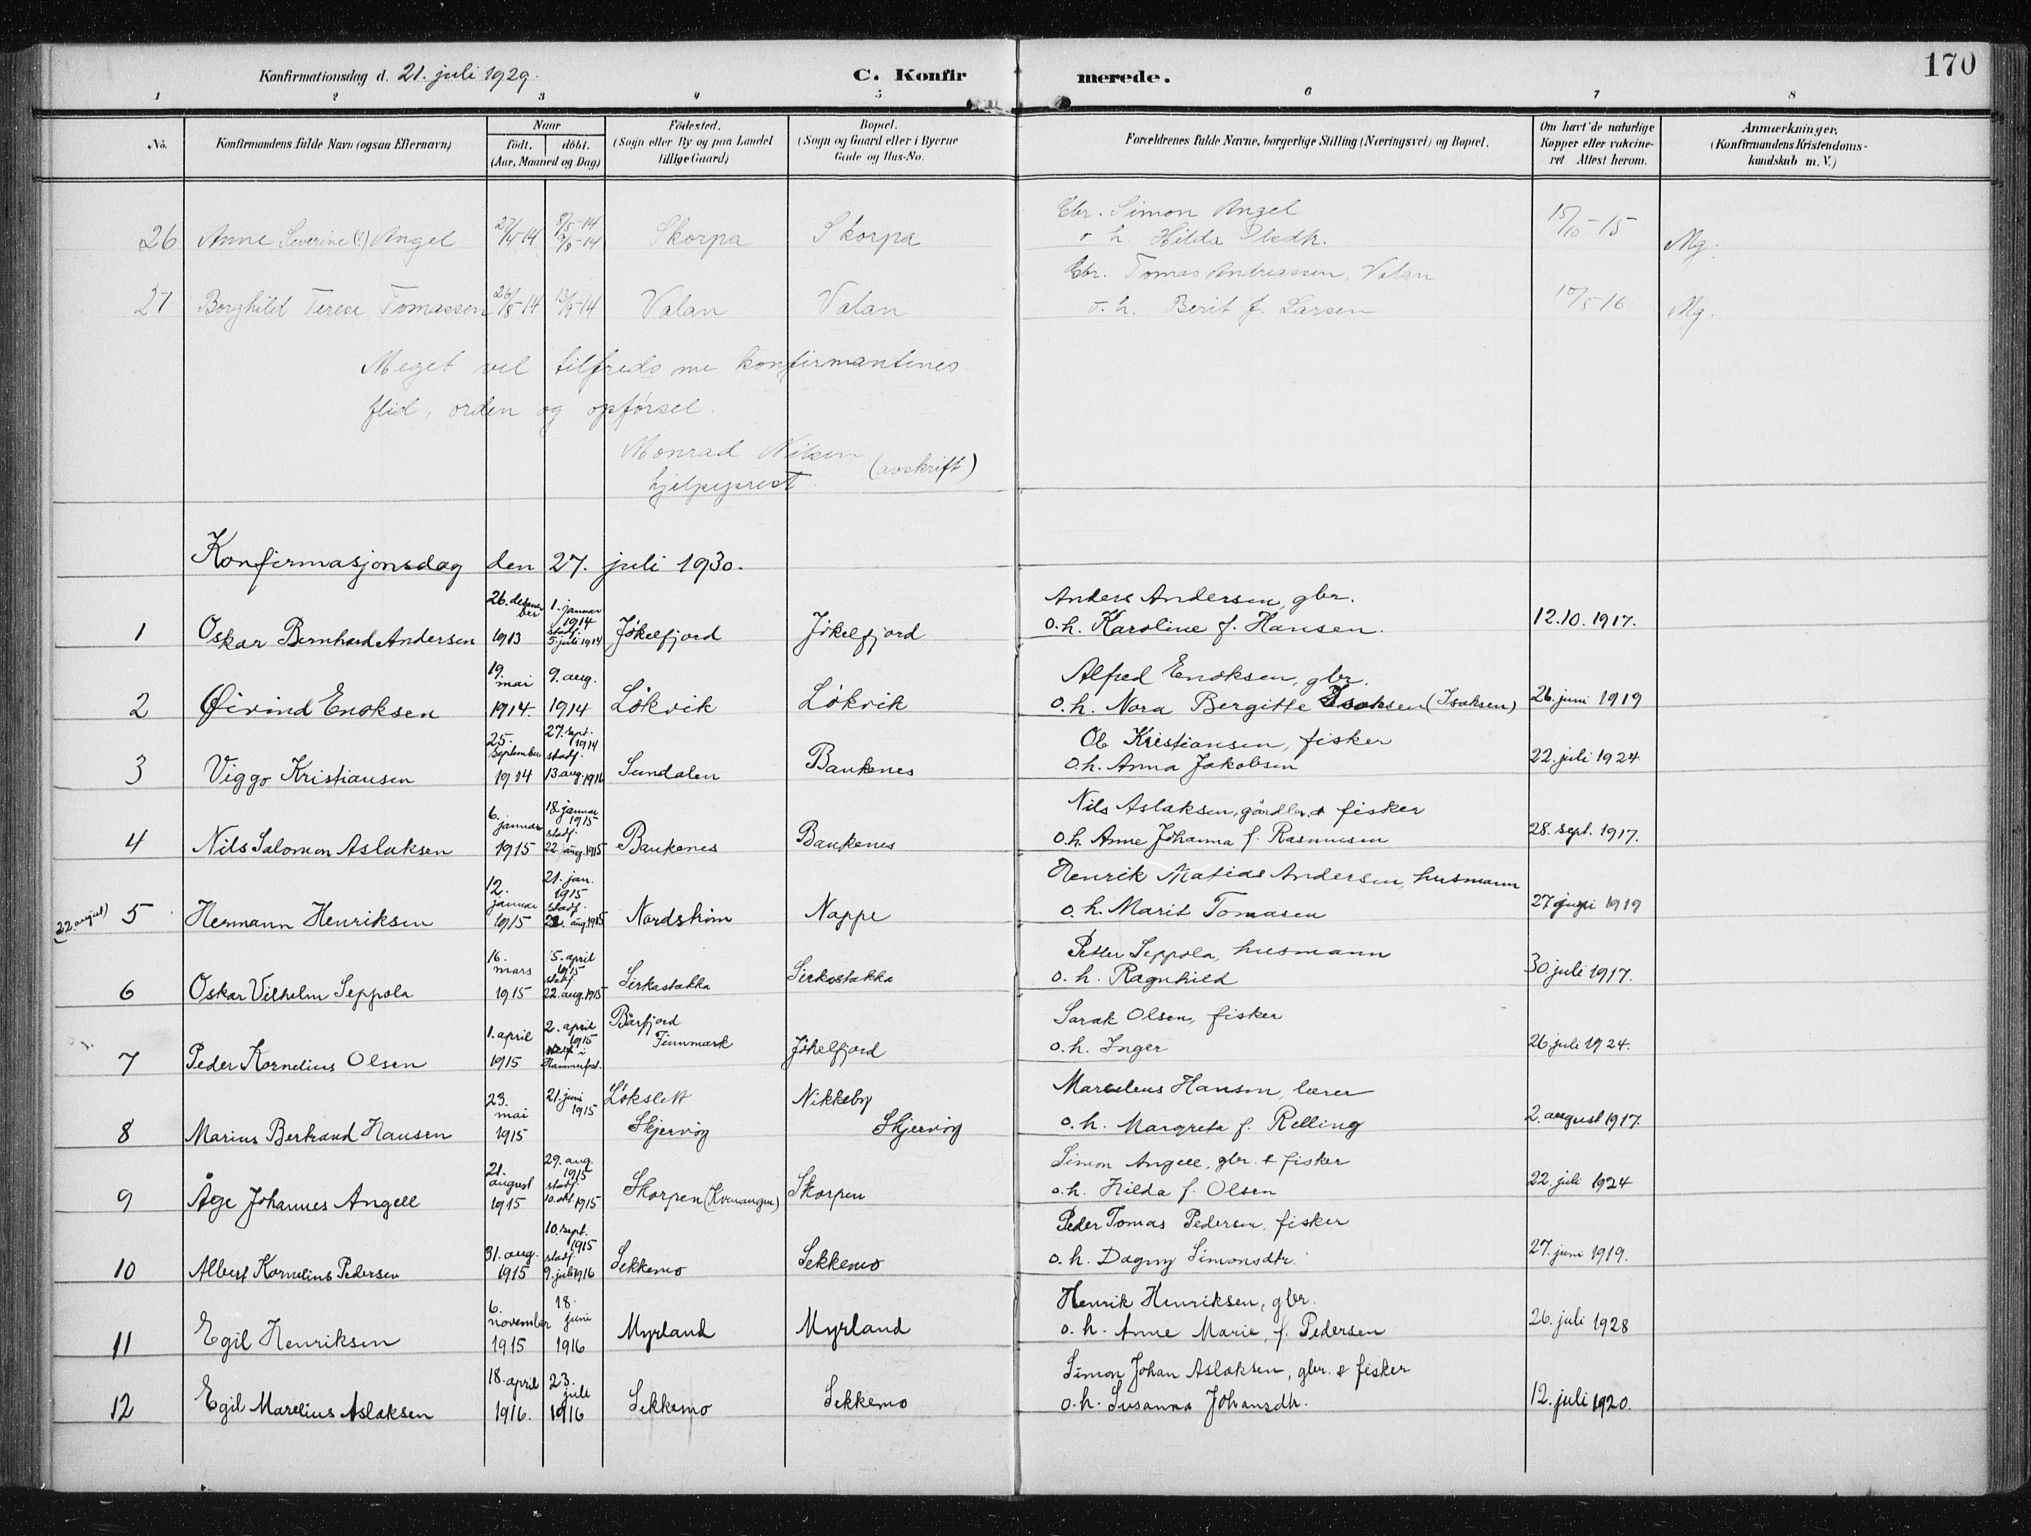 170
Konfirmationsdag d. 21. juli 1929. C. Konfirmerede.
1 2 3 4 5 6 7 8
No.
Konfirmandens fulde Navn (ogsaa Efternavn)
Naar
født. døbt.
(Aar, Maaned og Dag)
Fødested.
(Sogn eller By og paa Landet
tillige Gaard)
Bopæl.
(Sogn og Gaard eller i Byerne
Gade og Hus-No.
Forældrenes fulde Navne, borgerlige Stilling (Næringsvei) og Bopæl.
Om havt de naturlige
Kopper eller vakcine-
ret Attest herom.
Anmærkninger.
(Konfirmandens Kristendoms-
kundskab m. V.)
Gbr. Simon Angel
26 Anne Severine (?) Angel Skorpa Skorpa o. h. Hilda 15/10-15 Mg.
Gbr. Tomas Andreassen, Valan
27 Borghild Terese Tomassen 26/8-14 13/9-14 Valan Valan o. h. Berit f. Larsen 10/5-16 Mg.
Meget vel tilfreds me konfirmantenes
flid, orden og opførsel.
Monrad Nilsen (avskrift)
hjelpeprest.
Konfirmasjonsdag den 27. juli 1930.
26. desember 1. januar 1914 Anders Andersen, gbr.
1 Oskar Bernhard Andersen 1913 stadf. 5. juli 1914 Jøkelfjord Jøkelfjord o. h. Karoline f. Hansen. 12.10.1917.
19. mai 9. aug. Alfred Enoksen, gbr.
2 Øivind Enoksen 1914. 1914 Løkvik Løkvik o. h. Nora Bergitte Isaksen (Isaksen) 26. juni 1919
25. september 27. sept. 1914 stadf. Ole Kristiansen, fisker
3 Viggo Kristiansen 1914 13 aug. 1916 Sundalen Baukenes o. h. Anna Jakobsen 22. juli 1924
6. januar 18. januar 1915 stadf. Nils Aslaksen, gårdbr. & fisker
4 Nils Salomon Aslaksen 1915 22. aug. 1915 Baukenes Baukenes o. h. Anne Johanna f. Rasmusen 28. sept. 1917.
12. januar 21. jan. 1915 stadf. Henrik Matias Andersen, husmann
22 august) 5 Hermann Henriksen 1915 aug. 1915 Nordstrøm Nappe o. h. Marit Tomasen 27 juni 1919
16. mars 5. april 1915 stadf. Petter Seppola, husmann
6 Oskar Vilhelm Seppola 1915 22. aug. 1915 Sirkastakka Sirkastakka o. h. Ragnhild 30. juli 1917.
1. april 2. april 1915 Bårfjord Finnmark Sarak Olsen, fisker
7 Peder Kornelius Olsen 1915 i Hammerfest. Jøkelfjord o. h. Inger 26 juli 1924.
23. mai 21. juni 1915 Løkslett Nikkeby Marselius Hanson, lærer
8 Marius Bertrand Hansen 1915 Skjervøy Skjervøy o. h. Margreta f. Relling 2. august 1917.
21. august 29. aug. 1915 stadf. Simon Angell, gbr. & fisker
9 Åge Johannes Angell 1915 10. okt. 1915 Skorpen (Kvenangen) Skorpen o. h. Hilda f. Olsen 22. juli 1924
10. sept. 1915 stadf. Peder Tomas Pedersen, fisker
10 Albert Kornelius Pedersen 31. aug. 1915 9. juli 1916 Sekkemo Sekkemo o. h. Dagny Simonsdtr. 27. juni 1919.
6. november 18. juni Henrik Henriksen, gbr.
11 Egil Henriksen 1915 1916 Myrland Myrland o. h. Anne Marie, f. Pedersen 26. juli 1928
18. april 23. juli Simon Johan Aslaksen, gbr. & fisker
12 Egil Marelius Aslaksen 1916. 1916 Sekkemo Sekkemo o. h. Susanna Johansdtr. 12. juli 1920.